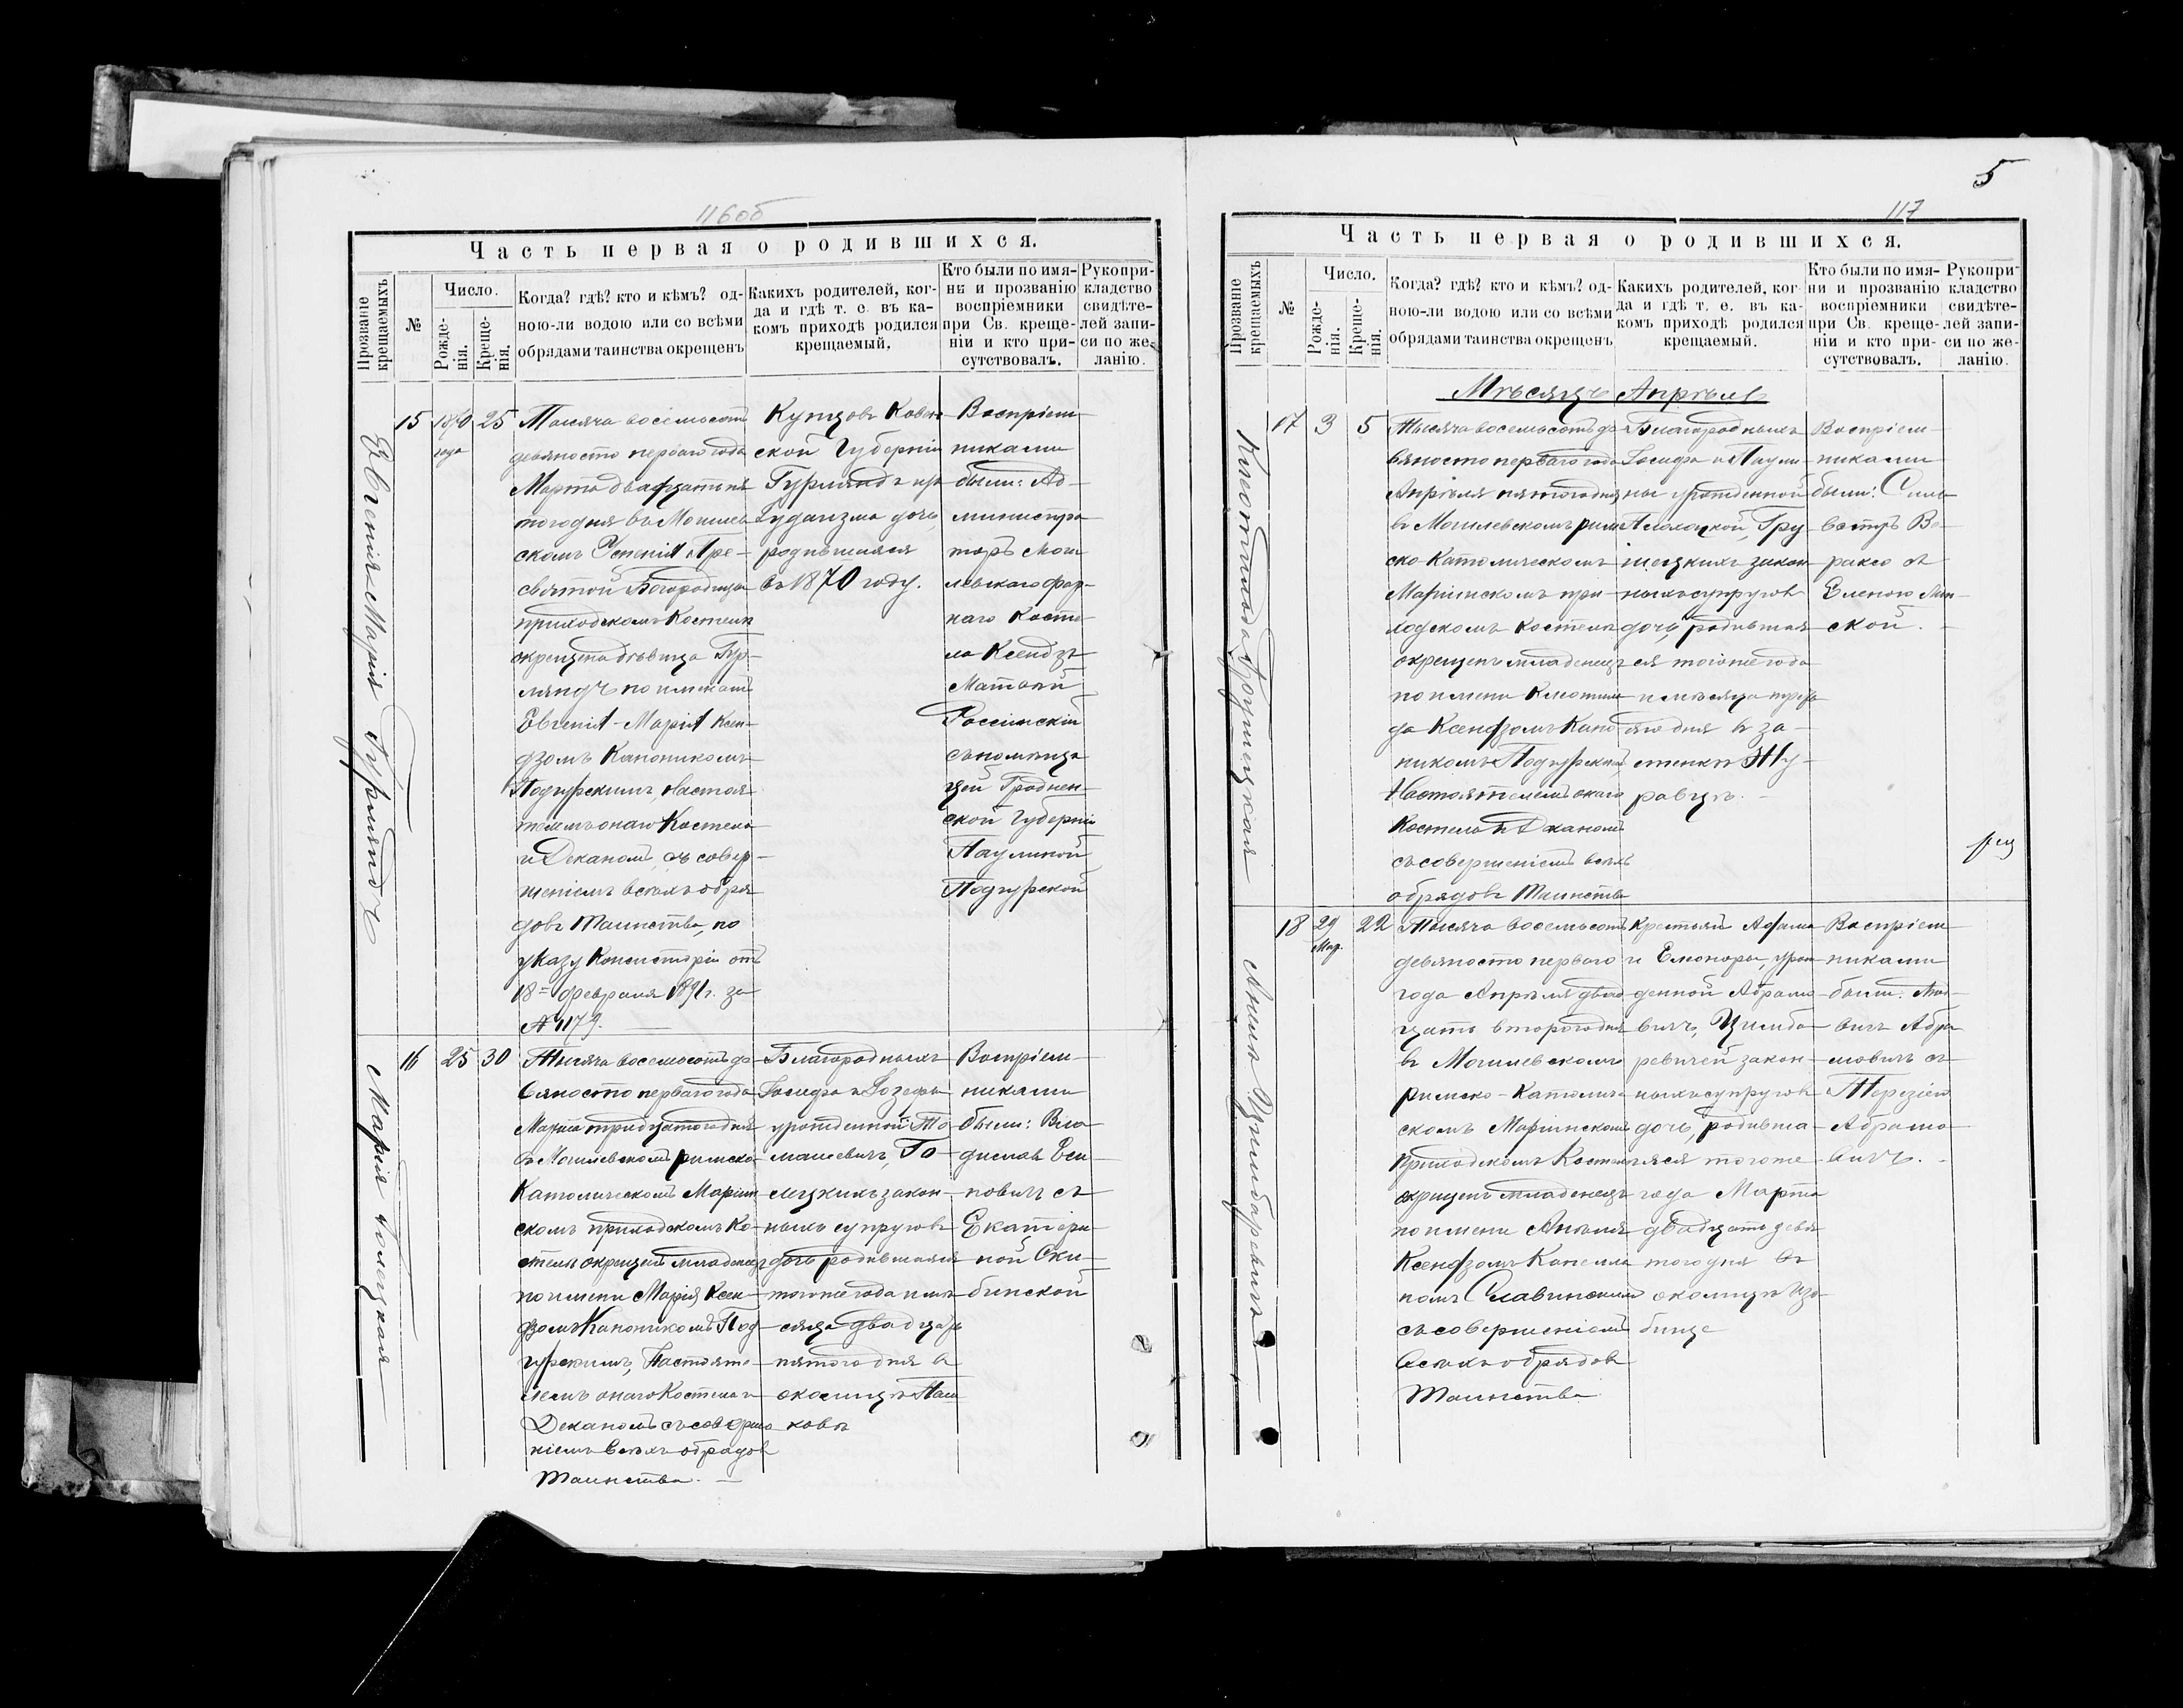 116об
Часть первая о родившихся.
Прозваніе крещаемыхъ
№
Число.
Рожденія.
Крещенія.
Когда? гдѣ? кто и кѣмъ? од-
ною-ли водою или со всѣми
обрядами таинства окрещенъ
Какихъ родителей, ког-
да и гдѣ т. е. въ ка-
комъ приходѣ родился
крещаемый.
Кто были по имя-
ни и прозванію
воспріемники
при Св. креще-
ніи и кто при-
сутствовалъ.
Рукопри-
кладство
свидѣте-
лей запи-
си по же-
ланію.
Евгенія-Марія Гурляндъ
15
1870
года
25
Тысяча восемьсотъ
девяносто перваго года
Марта двадцать пя-
того дня въ Могилев-
скомъ Успенія Пре-
святой Богородицы
приходскомъ Костелѣ
окрещена дѣвица Гур-
ляндъ по именамъ
Евгенія-Марія Ксен-
дзомъ Каноникомъ
Подгурскимъ, Настоя-
телемъ онаго Костела
и Деканомъ, съ совер-
шеніемъ всѣхъ обря-
довъ Таинства, по
указу Консисторіи отъ
18 февраля 1891 г. за
№ 1179.
Купцовъ Ковен-
ской Губерніи
Гурляндъ изъ
Іудаизма дочь,
родившаяся
въ 1870 году.
Воспріем-
никами
были: Ад-
министра-
торъ Моги-
левскаго фар-
наго Косте-
ла Ксендзъ
Матвѣй
Россинскій
съ помѣщи-
цей Гроднен-
ской Губерніи
Паулиной
Подгурской
Марія Голецкая
16
25
30
Тысяча восемьсотъ де-
вяносто перваго года
Марта тридцатого дня
въ Могилевскомъ римско-
Католическомъ Маріин-
скомъ приходскомъ Ко-
стелѣ окрещенъ младенецъ
по имени Марія Ксен-
дзомъ Каноникомъ Под-
гурскимъ, Настояте-
лемъ онаго Костела и
Деканомъ съ соверше-
ніемъ всѣхъ обрядовъ
Таинства.
Благородныхъ
Іосифа и Іозефы
урожденной То-
машевичъ, Го-
лецкихъ закон-
ныхъ супруговъ
дочь родившаяся
того же года и мѣ-
сяца двадцать
пятого дня въ
околицѣ Паш-
ковѣ
Воспріем-
никами
были: Вла-
диславъ Еси-
повичъ съ
Екатери-
ной Ски-
бинской
5
117
Часть первая о родившихся.
Прозваніе крещаемыхъ
№
Число.
Рожденія.
Крещенія.
Когда? гдѣ? кто и кѣмъ? од-
ною-ли водою или со всѣми
обрядами таинства окрещенъ
Какихъ родителей, ког-
да и гдѣ т. е. въ ка-
комъ приходѣ родился
крещаемый.
Кто были по имя-
ни и прозванію
воспріемники
при Св. креще-
ніи и кто при-
сутствовалъ.
Рукопри-
кладство
свидѣте-
лей запи-
си по же-
ланію.
Мѣсяцъ Апрѣль
Клотильда Грушецкая
17
3
5
Тысяча восемьсотъ де-
вяносто перваго года
Апрѣля пятого дня
въ Могилевскомъ рим-
ско-Католическомъ
Маріинскомъ при-
ходскомъ костелѣ
окрещенъ младенецъ
по имени Клотиль-
да Ксендзомъ Кано-
никомъ Подгурскимъ,
Настоятелемъ онаго
Костела и Деканомъ
съ совершеніемъ всѣхъ
обрядовъ Таинства
Благородныхъ
Іосифа и Паули-
ны урожденной
Грушецкихъ закон-
ныхъ супруговъ
дочь, родившая-
ся того же года
и мѣсяца треть-
яго дня въ за-
стенкѣ Жу-
равцѣ.
Воспріем-
никами
были: Силь-
вестръ Во-
раксо съ
Еленою
ской.
Аниля Цимбаревичъ
18
29
Мар.
22
Тысяча восемьсотъ
девяносто перваго
года Апрѣля двад-
цать второго дня
въ Могилевскомъ
римско-Католиче-
скомъ Маріинскомъ
приходскомъ Костелѣ
окрещенъ младенецъ
по имени Аниля
Ксендзомъ Капелла-
номъ Славинскимъ
съ совершеніемъ
всѣхъ обрядовъ
Таинства
Крестьянъ Адама
и Елеоноры, урож-
денной Абрамо-
вичъ, Цимба-
ревичей закон-
ныхъ супруговъ
дочь, родивша-
яся того же
года Марта
двадцать девя-
того дня въ
околицѣ Изо-
бище
Воспріем-
никами
были:
вигъ Абра-
мовичъ съ
Терезіею
Абрамо-
вичъ.